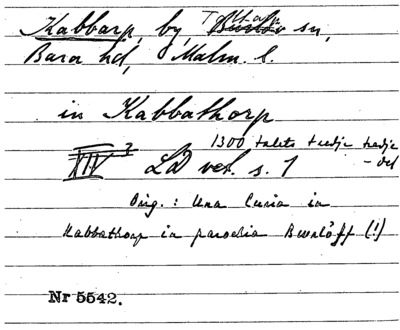 Kabbarp, by, Tottarps sn,
Bara hd, Malm. l.
in Kabbathorp
1300 talets tredje fredje
XIV 3 LD vet. s. 1 -del
Orig.: Una curia in
Kabbathorp in parochia Bwrløff (!)
Nr 5542.